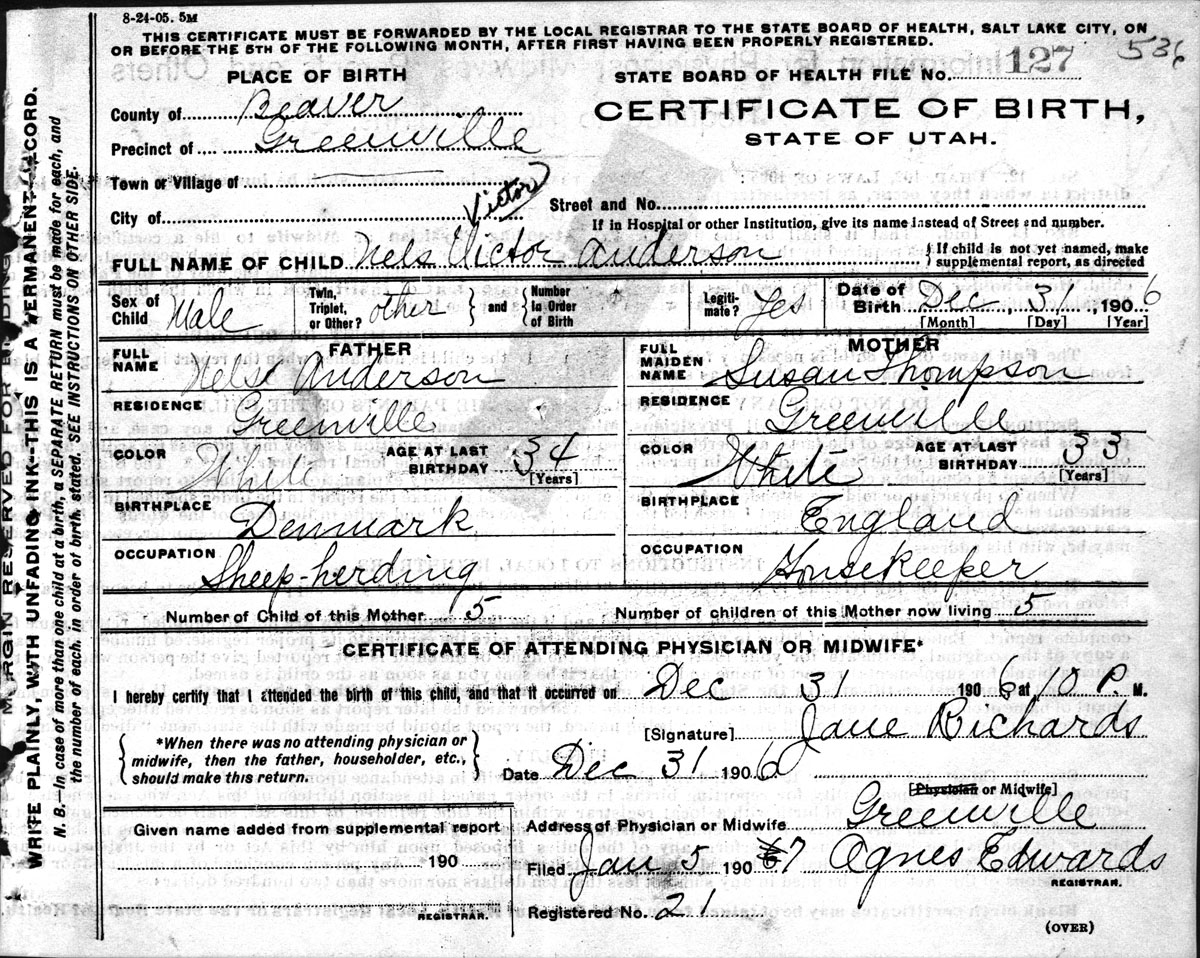 8-24-05. 5M
THIS CERTIFICATE MUST BE FORWARDED BY THE LOCAL REGISTRAR TO THE STATE BOARD OF HEALTH, SALT LAKE CITY, ON
OR BEFORE THE 5TH OF THE FOLLOWING MONTH, AFTER FIRST HAVING BEEN PROPERLY REGISTERED.
536
PLACE OF BIRTH
STATE BOARD OF HEALTH FILE No. 127
County of Beaver
CERTIFICATE OF BIRTH,
Precinct of Greenville
STATE OF UTAH.
Town or Village of
City of
Victor
Street and No.
If in Hospital or other Institution, give its name instead of Street and number.
FULL NAME OF CHILD Nels Victor Anderson
If child is not yet named, make
supplemental report, as directed
Sex of Child Male
Twin, Triplet, or Other? other
and
Number in Order of Birth
Legitimate? Yes
Date of Birth Dec 31, 1906
[Month] [Day] [Year]
FATHER
FULL NAME Nels Anderson
RESIDENCE Greenville
COLOR White
AGE AT LAST BIRTHDAY 34
[Years]
BIRTHPLACE Denmark
OCCUPATION Sheep-herding
MOTHER
FULL MAIDEN NAME Susan Thompson
RESIDENCE Greenville
COLOR White
AGE AT LAST BIRTHDAY 33
[Years]
BIRTHPLACE England
OCCUPATION Housekeeper
Number of Child of this Mother 5
Number of children of this Mother now living 5
CERTIFICATE OF ATTENDING PHYSICIAN OR MIDWIFE*
I hereby certify that I attended the birth of this child, and that it occurred on Dec 31 1906 at 10 P. M.
*When there was no attending physician or
midwife, then the father, householder, etc.,
should make this return.
[Signature] Jane Richards
Date Dec 31 1906
[Physician or Midwife]
Given name added from supplemental report
190
REGISTRAR.
Address of Physician or Midwife Greenville
Filed Jan 5 1907 Agnes Edwards
REGISTRAR.
Registered No. 21
(OVER)
MARGIN RESERVED FOR BINDING
WRITE PLAINLY, WITH UNFADING INK--THIS IS A PERMANENT RECORD.
N. B.--In case of more than one child at a birth, a SEPARATE RETURN must be made for each, and
the number of each, in order of birth, stated. SEE INSTRUCTIONS ON OTHER SIDE.